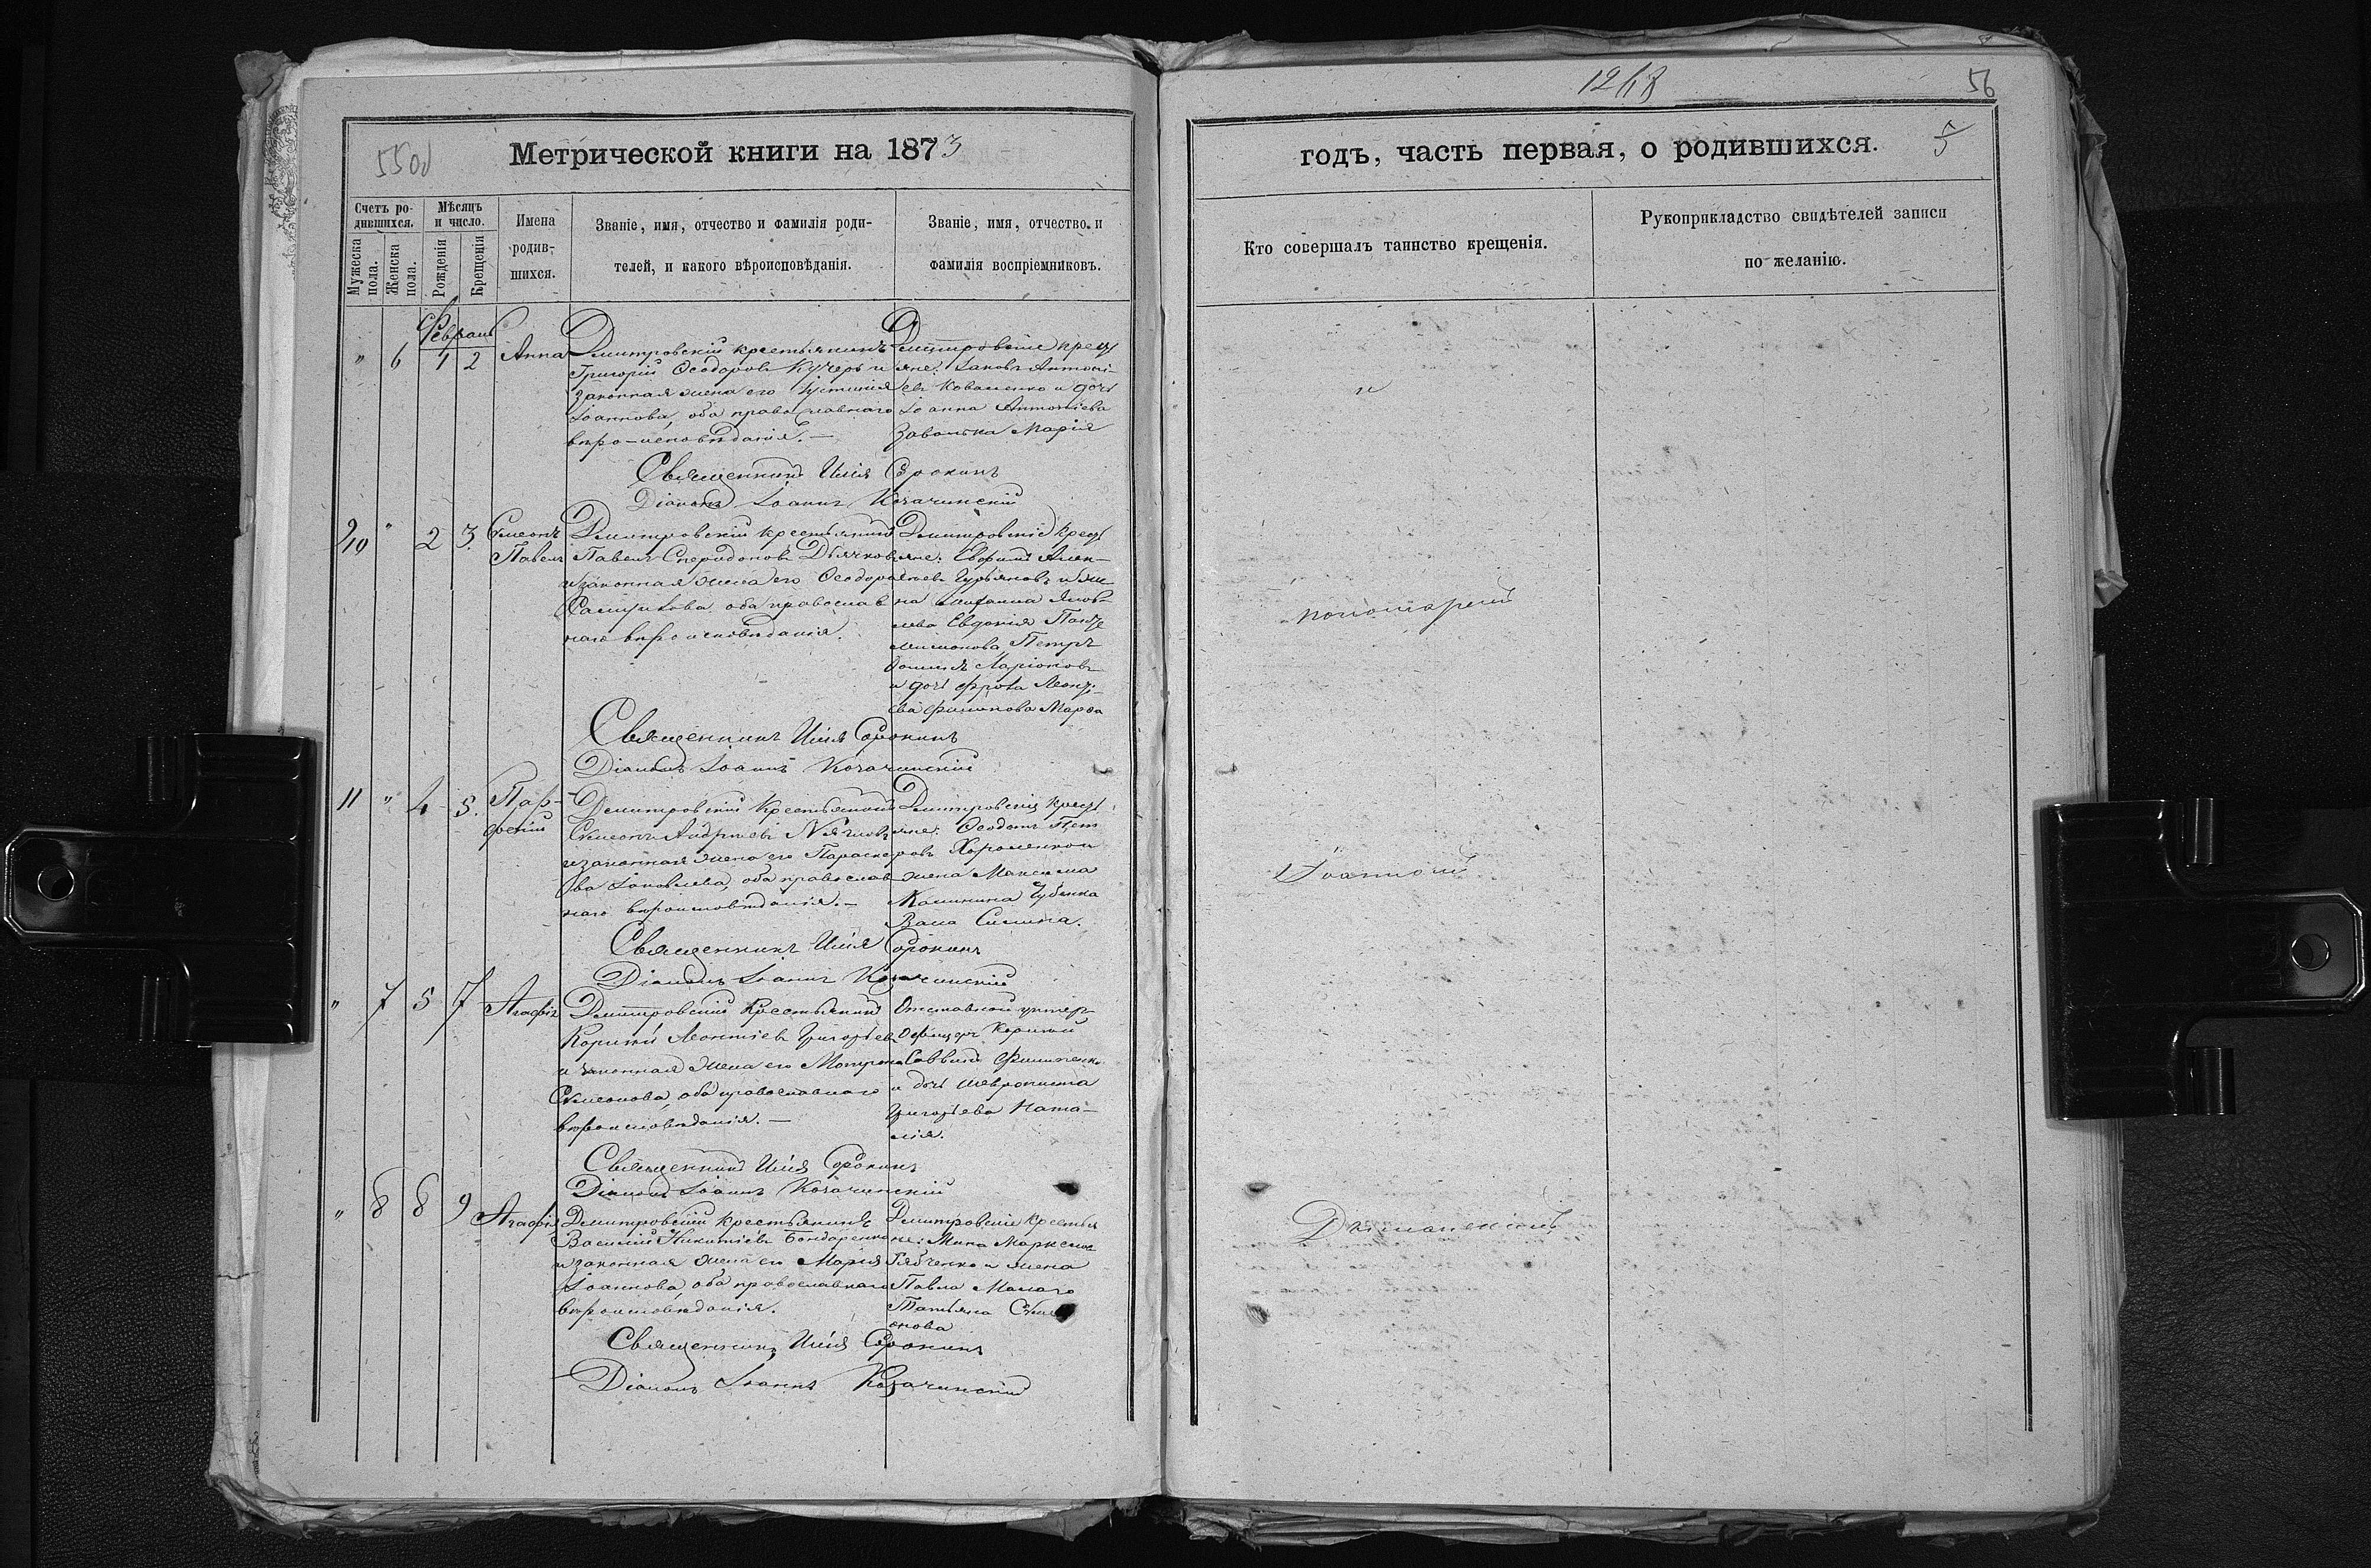 1268
56
550
Метрической книги на 1873
годъ, часть первая, о родившихся.
5
Счетъ ро-
дившихся.
Мѣсяцъ
и число.
Мужеска
пола.
Женска
пола.
Рожденія
Крещенія
Имена
родив-
шихся.
Званіе, имя, отчество и фамилія роди-
телей, и какого вѣроисповѣданія.
Званіе, имя, отчество и
фамилія воспріемниковъ.
Кто совершалъ таинство крещенія.
Рукоприкладство свидѣтелей записи
по желанію.
Февраль
" 6 1 2 Анна
Дмитровскій крестьянинъ
Григорій Ѳеодоровъ Кучеръ и
законная жена его Іустинія
Іоаннова, оба православнаго
вѣро-исповѣданія.—
Дмитровскіе крес
яне: Іаковъ Антоні-
евъ Коваленко и дочь
Іоанна Антоніева
Марія
и
Священникъ Илія Сорокинъ
Діаконъ Іоаннъ Козачинскій
9/10 " 2 3. Симеонъ
Павелъ
Дмитровскій крестьянинъ
Павелъ Спиридоновъ Дьячковъ
и законная жена его Ѳеодора
Самуилова, оба православ
наго вѣроисповѣданія.
Дмитровскіе крес
яне: Ефимъ Алек-
Гурьяновъ и же
на
лева Евдокія Панте
леимонова, Петръ
Ларіоновъ
и дочь Фрола Леонт-
ева Филинова Марѳа
пономаремъ
Священникъ Илія Сорокинъ
Діаконъ Іоаннъ Козачинскій
11 " 4 5. Пар-
фений
Дмитровскій крестьянинъ
Симеонъ Андреевъ
и законная жена его Параске
ва Іаковлева, оба православ
наго вѣроисповѣданія.—
Дмитровскіе крес
яне: Ѳеодотъ Пет
ровъ Хороленко и
жена Максима
Калинина Губенка
Васа Силина.
Іоанномъ
Священникъ Илія Сорокинъ
Діаконъ Іоаннъ Козачинскій
" 7 5 7 Агафія
Дмитровскій крестьянинъ
Корнилій Леонтіевъ Григорьевъ
и законная жена его Матрона
Симеонова, оба православнаго
вѣроисповѣданія.—
Отставной унтеръ
офицеръ Корнилій
Саввинъ Филипенко
и дочь
Григорьева Ната-
лія.
Священникъ Илія Сорокинъ
Діаконъ Іоаннъ Козачинскій
" 8 8 9 Агафія
Дмитровскій крестьянинъ
Василій Никитіевъ Бондаренко
и законная жена его Марія
Іоаннова, оба православнаго
вѣроисповѣданія.
Дмитровскіе крестья
не: Мина Маркеловъ
Рябченко и жена
Павла Малаго
Татьяна Симе
онова
Священникъ Илія Сорокинъ
Діаконъ Іоаннъ Козачинскій